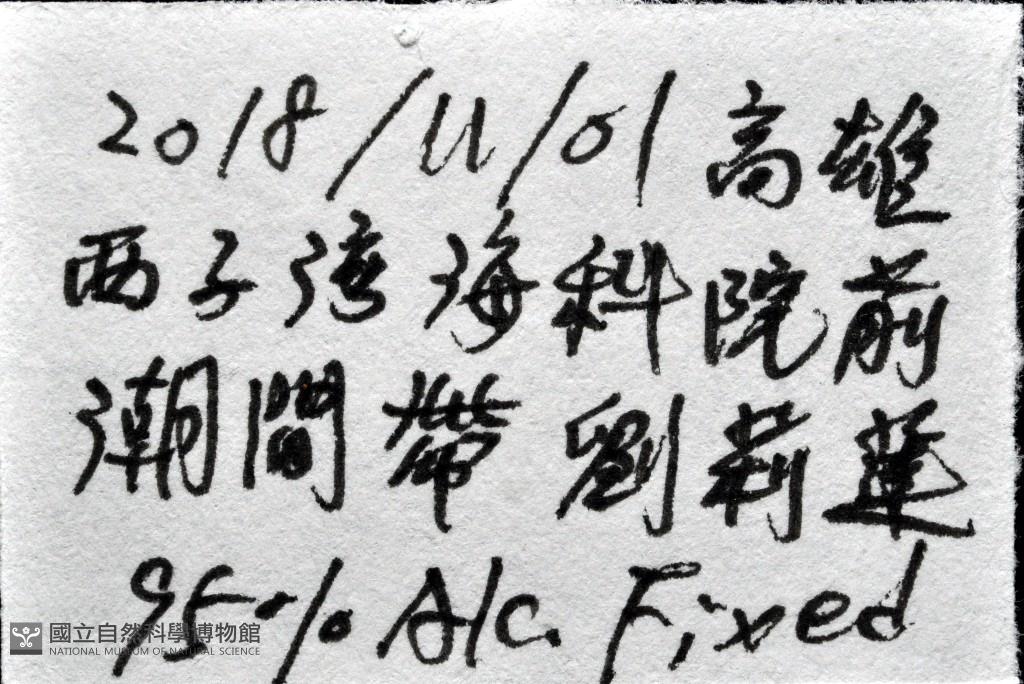 2018/11/01 高雄
西子湾海科院前
潮間帶 劉莉蓮
95% Alc. Fixed
國立自然科學博物館
NATIONAL MUSEUM OF NATURAL SCIENCE